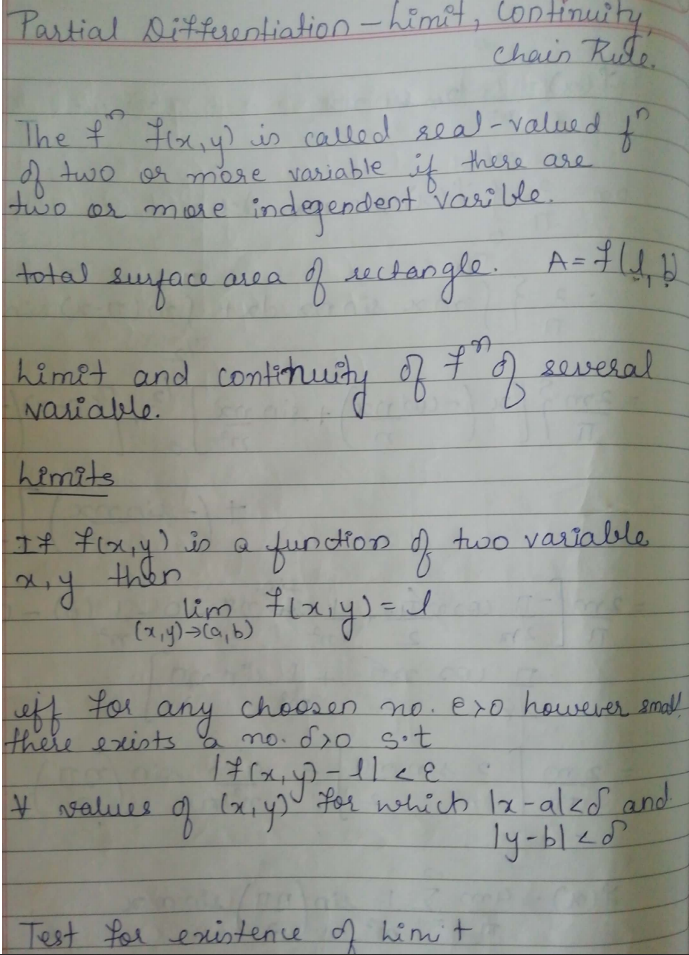 Partial Differentiation - Limit, Continuity,
Chain Rule.
The fⁿ f(x,y) is called real-valued fⁿ
of two or more variable if there are
two or more independent varible.
total surface area of rectangle. A = f(l, b)
Limit and continuity of fⁿ of several
variable.
Limits
If f(x,y) is a function of two variable
x, y then
lim f(x,y) = l
(x,y)→(a,b)
iff for any choosen no. ε>0 however small
there exists a no. δ>0 s.t
|f(x,y) - l| < ε
∀ values of (x,y) for which |x-a|<δ and
|y-b| < δ
Test for existence of Limit